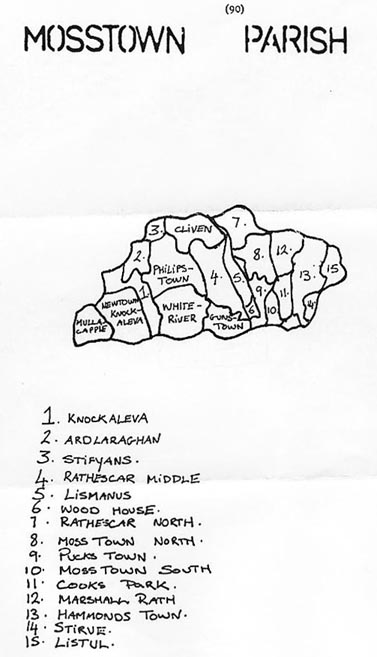 (90)
MOSSTOWN PARISH
7.
3. CLIVEN
2. 8. 12.
PHILIPS-
TOWN
4. 5. 13. 15
1. 9. 11.
NEWTOWN
KNOCK-
ALEVA
WHITE-
RIVER
MULLA-
CAPPLE
GUNS-
TOWN
6 10 14
1. KNOCKALEVA
2. ARDLARAGHAN
3. STIFYANS.
4. RATHESCAR MIDDLE
5. LISMANUS
6. WOOD HOUSE.
7. RATHESCAR NORTH.
8. MOSS TOWN NORTH.
9. PUCKS TOWN.
10. MOSS TOWN SOUTH
11. COOKS PARK.
12. MARSHALL RATH
13. HAMMONDS TOWN.
14. STIRUE.
15. LISTUL.